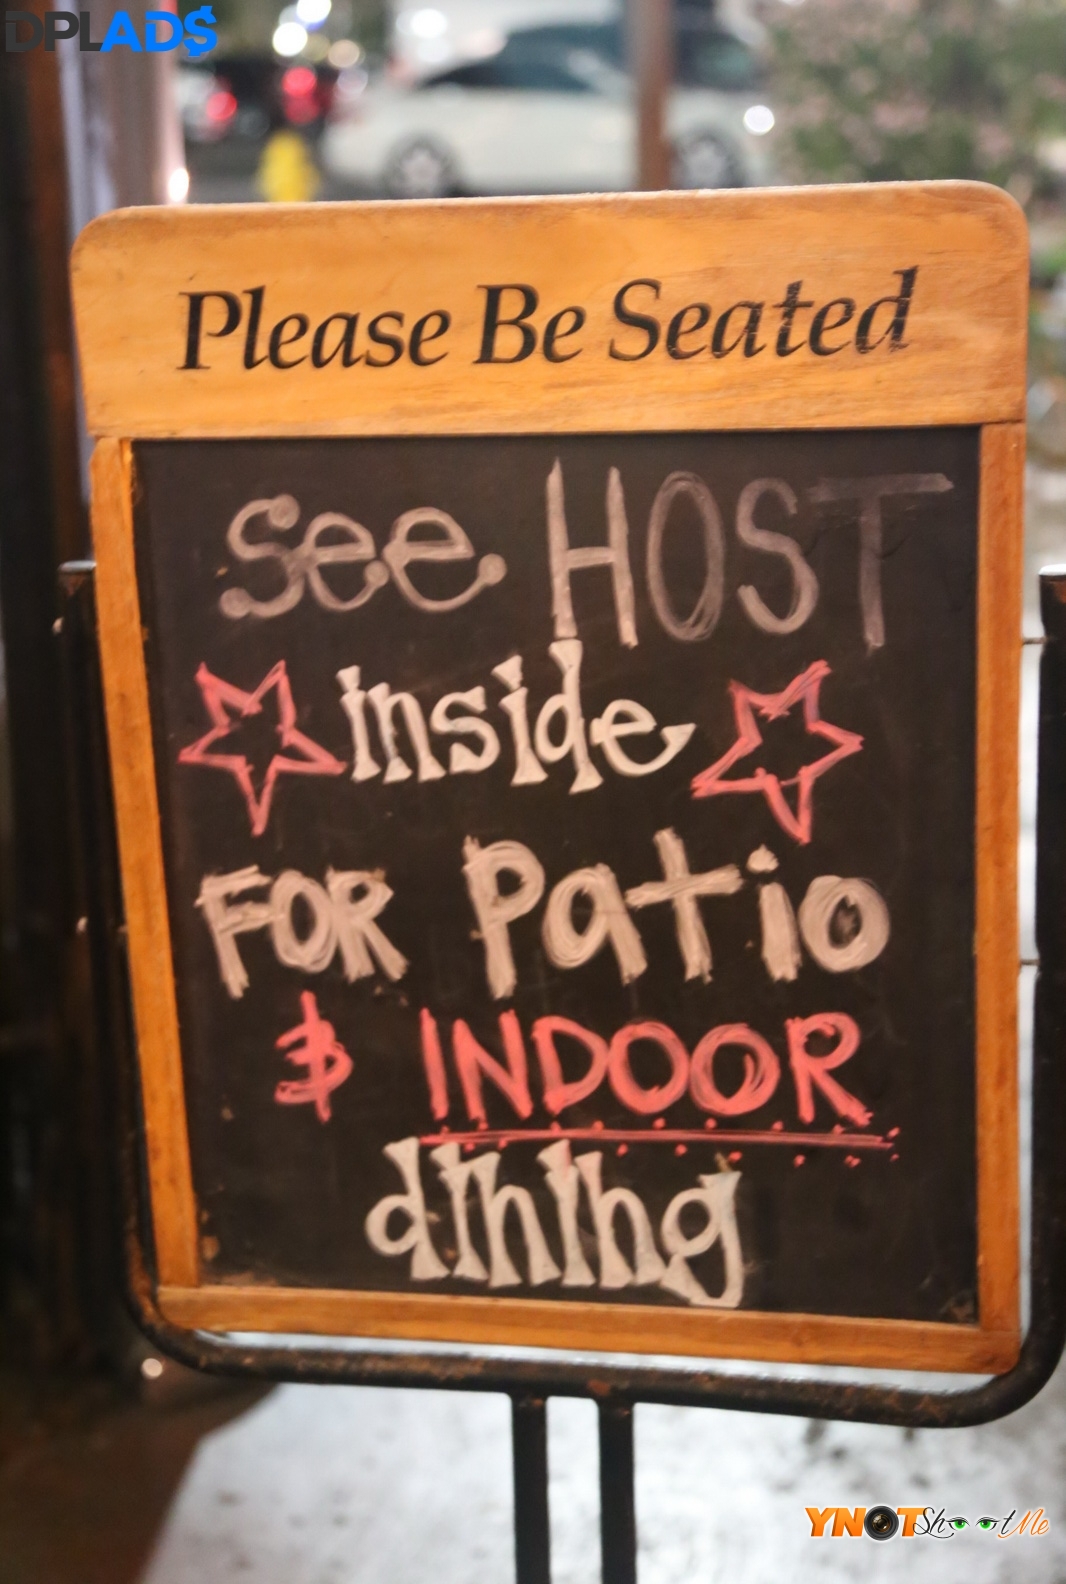 DPLAD$
Please Be Seated
See HOST
inside
FOR Patio
& INDOOR
dining
YNOTShootMe